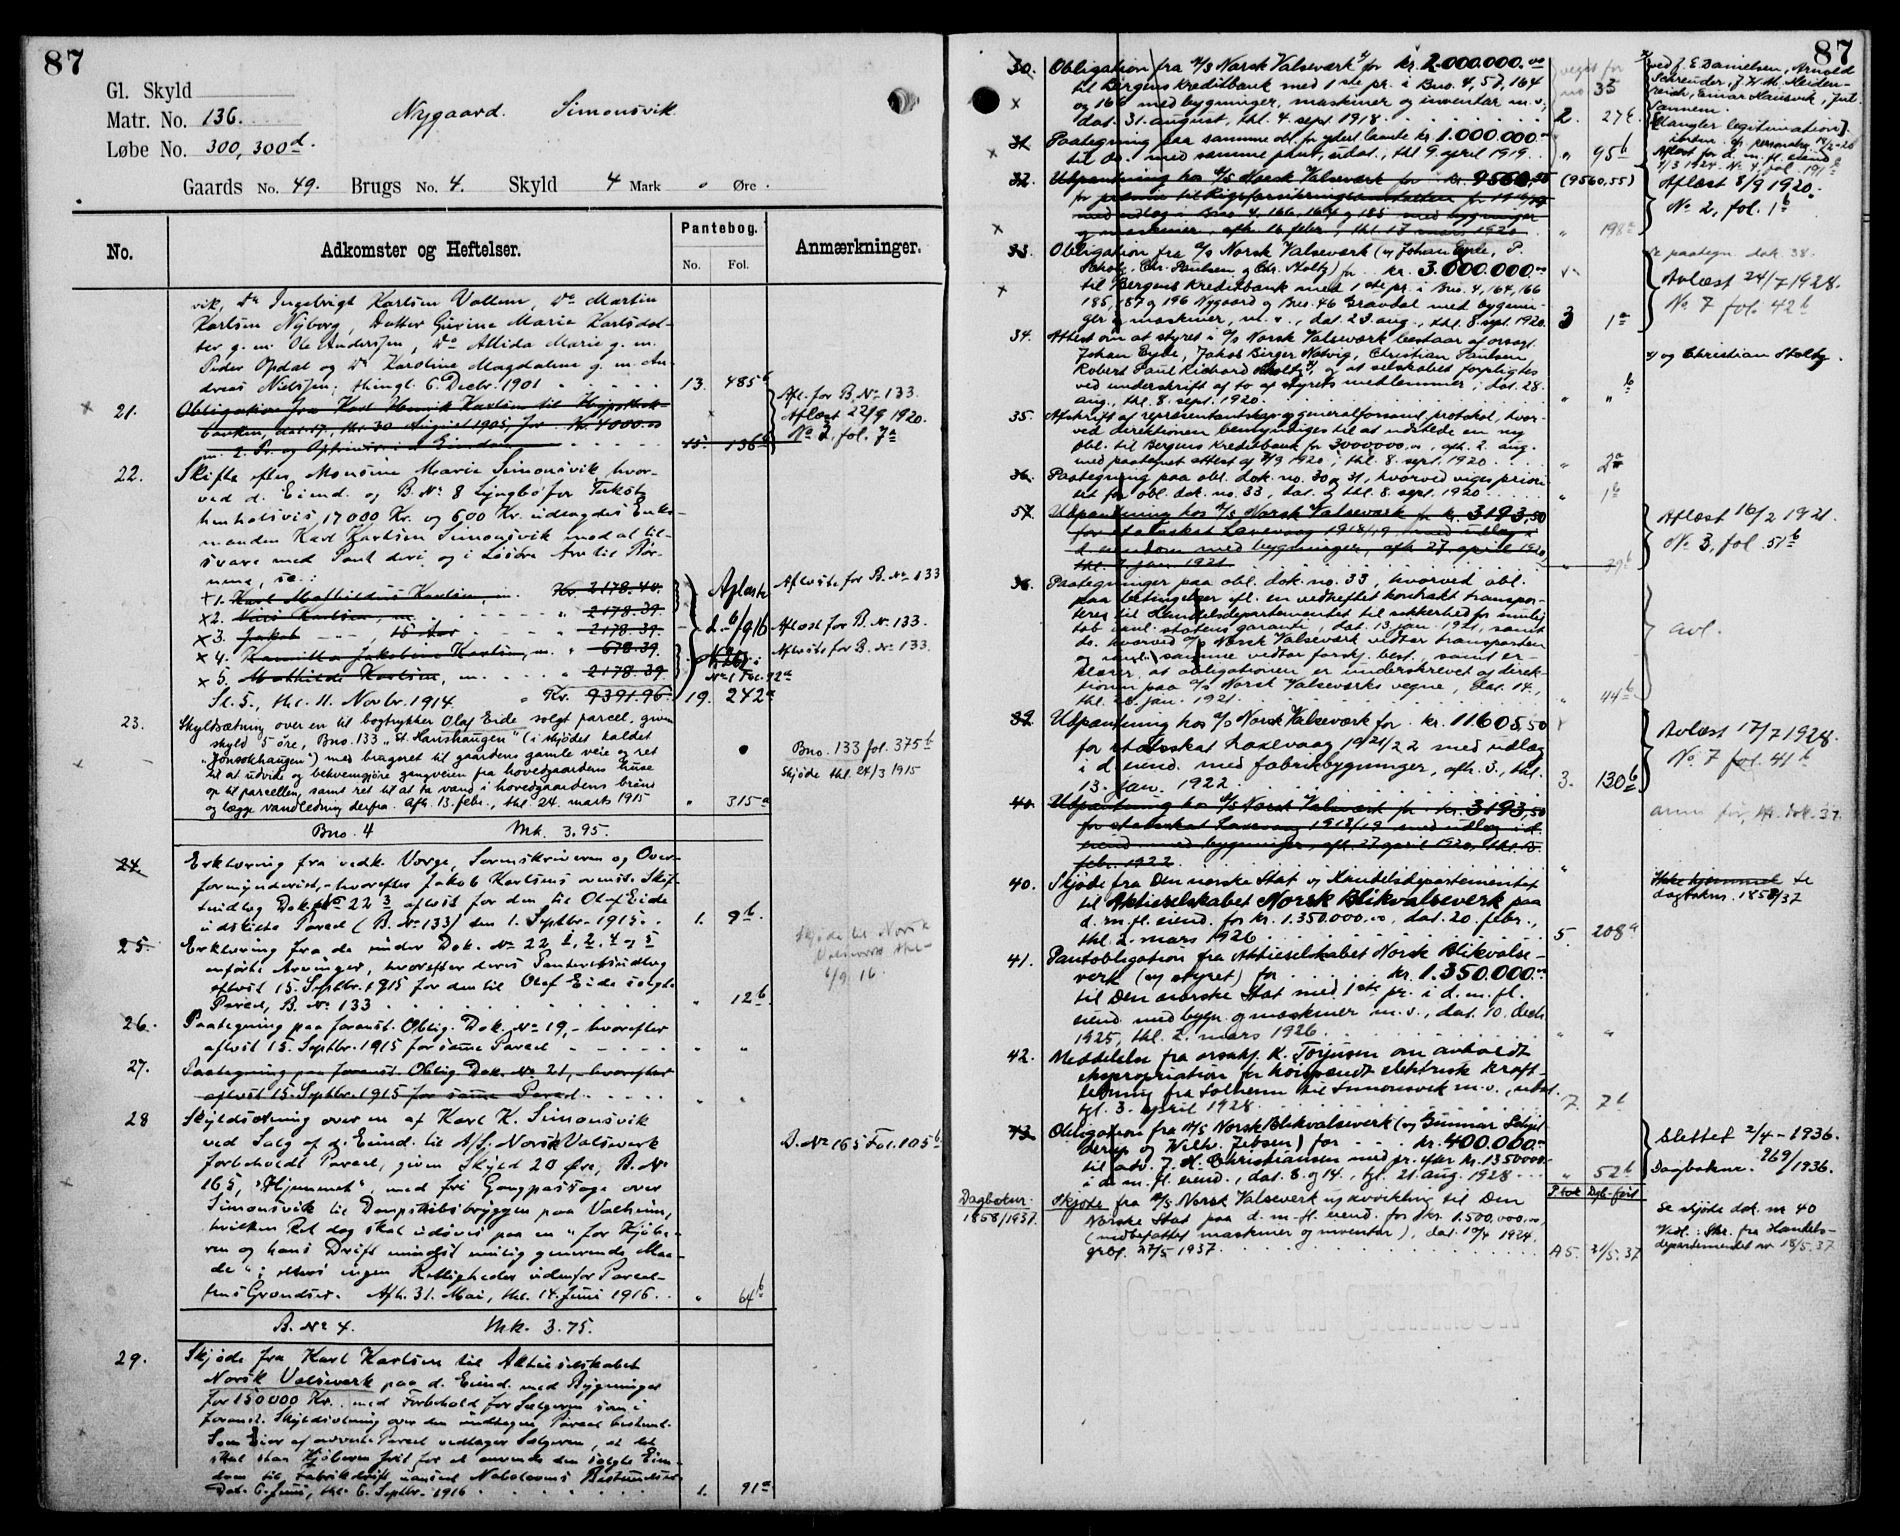 87
Gl. Skyld
Matr. No. 136.
Løbe No. 300, 300d.
Nygaard. Simonsvik
Gaards No. 49. Brugs No. 4. Skyld 4 Mark " Øre.
No. Adkomster og Heftelser. Pantebog. Anmærkninger.
No. Fol.
vik, Do Ingebrigt Karlsen Vollem, Do Martin
Karlsen Nyborg, Datter Gurine Marie Karlsdat-
ter g. m. Ole Anderssen, Do Allida Marie g. m.
Peder Opdal og Do Karoline Magdalene g. m. An-
dreas Nielssen; thingl. 6. Decbr. 1901 13. 485b
21. Obligation fra Karl Henrik Karlsen til Hypothek-
banken, dat. 17, thl. 30 August 1905, for Kr. 4000.00
m. 2. Pr. og Opfrinsr. i d. Eiendom 15. 136a
Afl. for B. No 133.
Aflæst 22/9 1920.
No 2. fol. 7a
22. Skifte efter Monsine Marie Simonsvik hvor-
ved d. Eiend. og B. No 8 Lyngbø for Takst
henholsvis 17000 Kr. og 600 Kr. udlagdes Enke-
manden Karl Karlsen Simonsvik mod at til-
svare med Pant deri og i Løsøre Arv til Bør-
nene, sc.:
1. Karl Mathildus Karlsen, Kr. 2178.40.
Afløste for B. No 133
2. Nils Karlsen, m. " 2178.39.
3. Jakob --- 15 Aar " 2178.39.
Aflæst for B. No. 133.
4. Kamilla Jakobine Karlsen, m. " 678.39.
Afløste for B. No. 133.
5. Mathilde Karlsen, m. " 2178.39.
Sl. S., thl. 11. Novbr. 1914 Kr. 9391.96. 19. 242a
Aflæste
d. 6/9 16
No 1 Fol. 92a
23. Skyldsætning over en til bogtrykker Olaf Eide solgt parcel, given
skyld 5 øre, Bno. 133 „St. Hanshaugen" (i skjødet kaldet
„Jonsokhaugen") med brugsret til gaardens gamle veie og ret
til at udvide og bekvemgjøre gangveien fra hovedgaardens huse
op til parcellen, samt ret til at ta vand i hovedgaardens brønd
og lægge vandledning derfra. Afh. 13. febr., thl. 24. marts 1915 " 315a
Bno. 133 fol. 375b
Skjøde thl. 24/3 1915
Bno. 4 Mk. 3.95.
24. Erklæring fra vedk. Værge, Sorenskriveren og Over-
formynderiet, - hvorefter Jakob Karlsens ovenst. Skif-
teudlæg Dok. No 22 3 afløst for den til Olaf Eide
udskilte Parcel (B. No 133) den 1. Septbr. 1915. 1. 9b.
25. Erklæring fra de under Dok. No 22 1, 2, 4 og 5
anførte Arvinger, hvorefter deres Panteretsudlæg
afløst 15. Septbr. 1915 for den til Olaf Eide solgte
Parcel, B. No 133 " 12b
Skjøde til Norsk
Valseværk thl.
6/9. 16.
26. Paategning paa foranst. Oblig. Dok. No 19, - hvorefter
afløst 15. Septbr. 1915 for samme Parcel " "
27. Paategning paa foranst. Oblig. Dok. No 21, - hvorefter
afløst 15. Septbr. 1915 for samme Parcel " "
28 Skyldsætning over en af Karl K. Simonsvik
ved Salg af d. Eiend. til A/S. Norsk Valsværk
forbeholdt Parcel, given Skyld 20 Øre, B. No
165, "Hjemmet", med fri Gangpassage over
Simonsvik til Dampskibsbryggen paa Valheim,
hvilken Ret dog skal udøves paa en "for Kjøbe-
ren og hans Drift mindst mulig generende Maa-
de"; ellers ingen Rettigheder udenfor Parcel-
lens Grændser. Afh. 31. Mai, thl. 14. Juni 1916. " 64b
B. No 165 Fol. 105b
B. No 4. Mk. 3.75.
29. Skjøde fra Karl Karlsen til Aktieselskabet
Norsk Valsværk paa d. Eiend. med Bygninger
for 150000 Kr. med Forbehold for Sælgeren som i
foranst. Skyldsætning over den undtagne Parcel bestemt.
Som Eier af nævnte Parcel vedtager Sælgeren, at det
skal staa Kjøberen frit for at anvende den solgte Eien-
dom til Fabrikdrift uanseet Nabolovens Bestemmelser
Dat. 6. Juni, thl. 6. Septbr. 1916 1. 91a
87
30. Obligation fra A/S Norsk Valseverk x) for kr. 2.000.000.00
til Bergens Kreditbank med 1ste pr. i Bno. 4, 57, 164
og 166 med bygninger, maskiner og inventar m. v.,
dat. 31. august, thl. 4. sept. 1918. 2. 276
veget for
no 33
x) ved J. E. Danielsen, Arnold
Schreuder, J. H. M. Heiden-
reich, Einar Hausvik, Jul.
Sannem.
[Mangler legitimation].
31. Paategning paa samme obl. for yderl. laante kr. 1.000.000.00
til do. med samme pant, udat., thl. 9. april 1919. " 95b
32. Udpantning hos A/S Norsk Valseverk for kr. 9560,55 (9560,55)
for præmie til Rigsforsikringsanstalten for
med udlæg i Bno 4, 166, 164 og 185 med bygninger
og maskiner, afh. 16. febr., thl. 17. mars 1920 " 198a
Aflæst 8/9 1920.
No 2, fol. 1b
33. Obligation fra A/S Norsk Valseverk (v/ Johan Eyde, P.
Scholz, Chr. Paulsen og Chr. Stoltz) for kr. 3.000.000.00
til Bergens Kreditbank med 1ste pr. i Bno. 4, 164, 166
185, 187 og 196 Nygaard og Bno. 46 Gravdal med bygnin-
ger og maskiner, m. v., dat. 23. aug., thl. 8. sept. 1920. 3 1a
Se paategn. dok. 38.
Avlæst 24/7 1928.
No 7 fol. 42b
34. Attest om at styret i A/S Norsk Valseverk bestaar af orsagf.
Johan Eyde, Jakob Birger Natvig, Christian Paulsen,
Robert Paul Richard Scholtz x), og at selskabet forpligtes
ved underskrift af to af styrets medlemmer; dat. 28.
aug., thl. 8. sept. 1920. " " b
x) og Christian Stoltz.
35. Afskrift af representantskap og generalforsaml. protokol, hvor-
ved direktionen bemyndiges til at udstede en ny
obl. til Bergens Kreditbank for 3.000.000.00, afh. 2. aug.
med paategnet attest af 7/9 1920, thl. 8. sept. 1920. " 2a
36. Paategning paa obl. dok. no. 30 og 31, hvorved viges priori-
tet for obl. dok. no. 33, dat. og thl. 8. sept. 1920. " 1b
37. Udpantning hos A/S Norsk Valseverk for kr. 3193,50
for statsskat Laxevaag 1918/19 med udlæg i
d. eiendom med bygninger, afh. 27. april 1920,
thl. 7. jan. 1921. " 39b
Aflæst 16/2 1921.
No 3, fol. 51b
38. Paategninger paa obl. dok. no. 33, hvorved obl.
paa betingelser efl. en vedheftet kontrakt transpor-
teres til Handelsdepartementet til sikkerhed for mulig
tab anl. statens garanti, dat. 13. jan. 1921, samt
do. hvorved A/S Norsk Valseverk vedtar transporten
og samme vedtar forskj. best., samt er-
klærer at obligationen er underskrevet af direk-
tionen paa A/S Norsk Valseverks vegne, dat. 14.,
thl. 28. jan. 1921. " 44b
avl.
39. Udpantning hos A/S Norsk Valseverk for kr. 11605,50
for statsskat Laxevaag 1921/22 med udlæg
i d. eiend. med fabrikbygninger, afh. 3., thl.
13. jan. 1922. 3. 130b
Avlæst 17/7 1928.
No. 7 fol. 41b
40. Udpantning hos A/S Norsk Valseverk for kr. 3193,50
for statsskat Laxevaag 1918/19 med udlæg i d.
eiend. med bygninger, afh. 27. april 1920, thl. 13.
febr. 1922. "
anm. før, se dok. 37.
40. Skjøde fra Den norske Stat v/ Handelsdepartementet
til Aktieselskabet Norsk Blikvalseverk paa
d. m. fl. eiend. for kr. 1.350.000.00, dat. 20. febr.,
thl. 2. mars 1926. 5. 208a
Ikke hjemmel se
dagboknr. 1858/37
41. Pantobligation fra Aktieselskabet Norsk Blikvalse-
verk (v/ styret) for kr. 1.350.000.00
til Den norske Stat med 1ste pr. i d. m. fl.
eiend. med bygn. og maskiner m. v., dat. 10. decbr.
1925, thl. 2. mars 1926. " "
42. Meddelelse fra orsakf. K. Torjusen om avholdt
ekspropriation for høispændt elektrisk kraft-
ledning fra Solheim til Simonsvik m. v., udat.
tgl. 3. april 1928. 7. 7b
43. Obligation fra A/S Norsk Blikvalseverk (v/ Gunnar Schjel-
derup og Wilh. Jebsen) for kr. 400.000.00
til adv. J. H. Christiansen med pr. efter kr. 1350000.-
i d. m. fl. eiend., dat. 8. og 14., tgl. 21. aug. 1928. " 52b
Slettet 2/4-1936.
Dagboknr. 969/1936.
P.bok Dgb.ført
Dagboknr.
1858/1937.
Skjøde fra A/S Norsk Valseverk u/ avvikling til Den
Norske Stat paa d. m. fl. eiend. for kr. 1.500.000.00,
(medbefattet maskiner og inventar), dat. 10/4 1924,
grbf. 27/5 1937. A 5. 31/5.37
Se skjøte dok. nr. 40
Vedl.: Skr. fra Handels-
departementet av 18/5.37